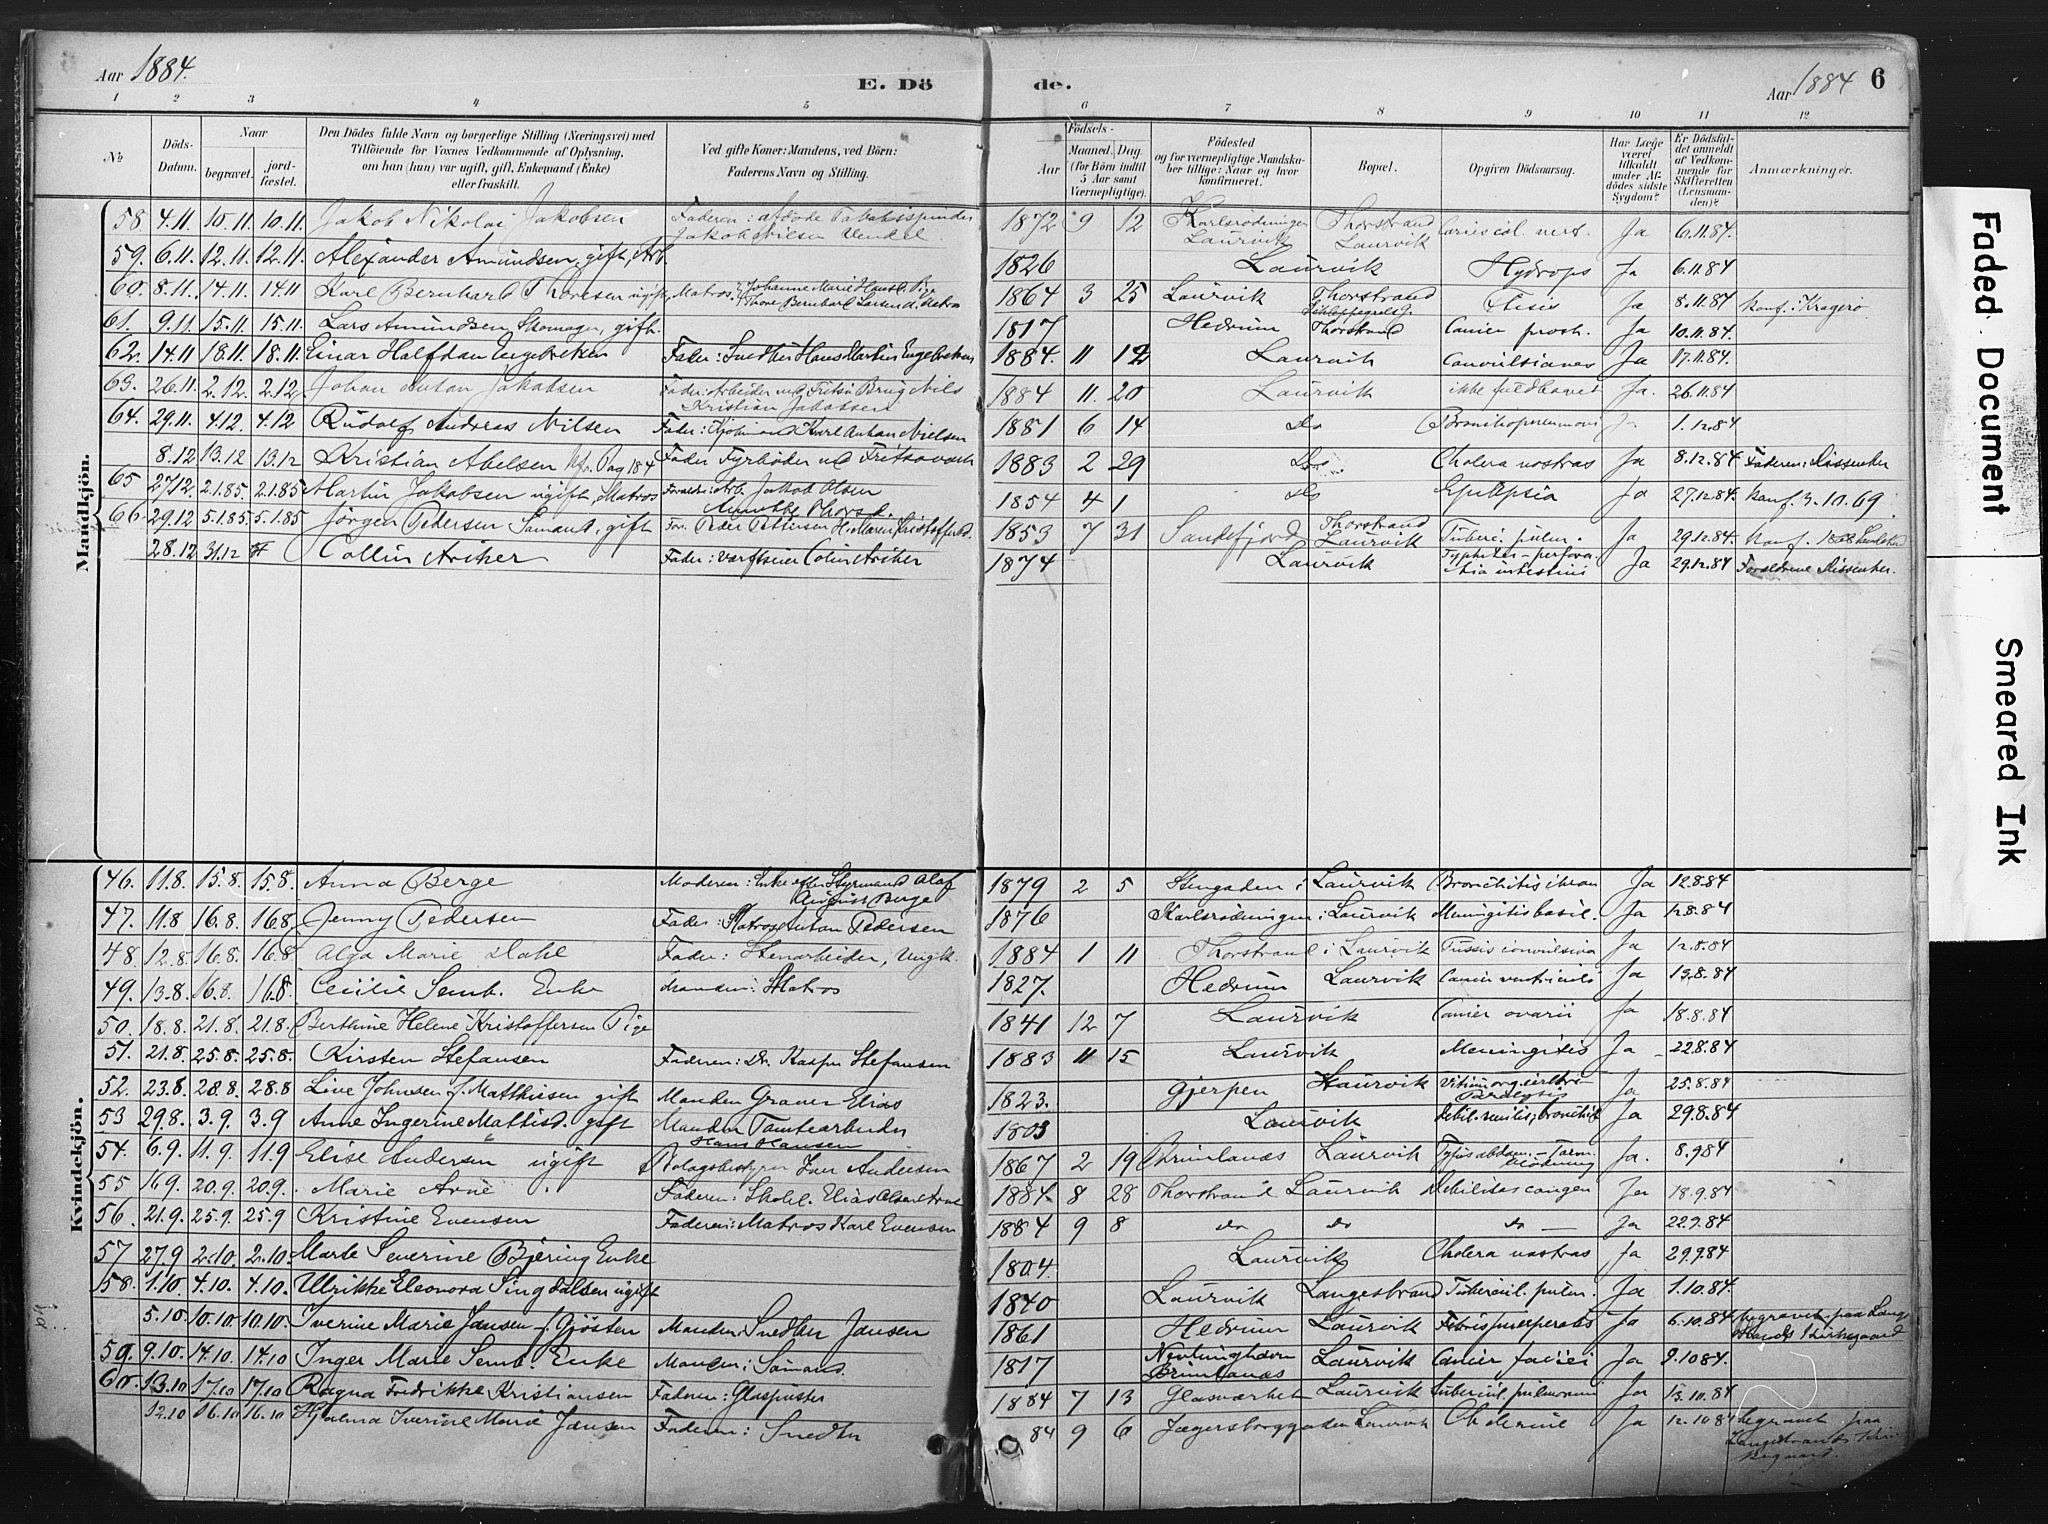 Aar 1884.
E. Döde.
Aar 1884
6
1 2 3 4 5 6 7 8 9 10 11 12
No
Döds-Datum.
Naar
begravet.
jord-fæstet.
Den Dödes fulde Navn og borgerlige Stilling (Næringsvei) med
Tilföiende for Voxnes Vedkommende af Oplysning,
om han (hun) var ugift, gift, Enkemand (Enke)
eller fraskilt.
Ved gifte Koner: Mandens, ved Börn:
Faderens Navn og Stilling.
Födsels-
Aar
Maaned. Dag.
(for Börn indtil
5 Aar samt
Værnepligtige).
Födested
og for værnepligtige Mandska-
ber tillige: Naar og hvor
konfirmeret.
Bopæl.
Opgiven Dödsaarsag.
Har Læge
været
tilkaldt
under Af-
dödes sidste
Sygdom?
Er Dödsfal-
det anmeldt
af Vedkom-
mende for
Skifteretten
(Lensman-
den)?
Anmærkninger.
Mandkjön.
58. 4.11 10.11 10.11. Jakob Nikolai Jakobsen Faderen: afdöde Jakob Nilsen 1872 9 12 Laurvik Thorstrand Laurvik Ja 6.11.84.
59. 6.11 12.11 12.11. Alexander Amundsen, gift, Arb. 1826 Laurvik Hydrops Ja 6.11.84
60. 8.11 14.11 14.11 Karl Bernhard Thoresen ugift, Matros. 1864 3 25 Laurvik Thorstrand Ja 8.11.84 Konf. i Kragerø
61. 9.11. 15.11. 15.11. Lars Amundsen Skomager, gift. 1817 Hedrum Thorstrand Ja 10.11.84.
62. 14.11 18.11. 18.11. Einar Halfdan Engebretsen Fader: Snedker Hans Martin Engebretsen 1884. 11 12 Laurvik Convulsiones Ja 17.11.84.
63. 26.11. 2.12. 2.12. Johan Anton Jakobsen Fader: Arbeider ved Fritsø Brug Nils Kristian Jakobsen 1884 11. 20 Laurvik ikke fuldbaaret Ja. 26.11.84
64. 29.11. 4.12. 4.12 Rudolf Andreas Nilsen Fader: Karl Anthon Nielsen 1881 6 14 Do Bronchopneumoni Ja 1.12.84
8.12 13.12 13.12 Kristian Abelsen Pag 184 Fader Fyrböder ved Fritsøværk 1883 2 29 Do. Cholera nostras Ja 8.12.84 Faderen: Dissenter
65 27.12. 2.1.85. 2.1.85 Martin Jakobsen ugift, Matros Forældre: Arb. Jakob Olsen 1854 4 1 Do Epilepsia Ja 27.12.84. Konf. 3.10.69.
66. 29.12 5.1.85. 5.1.85 Jörgen Pedersen Sömand, gift 1853 7 31 Sandefjord Thorstrand Laurvik Ja 29.12.84. Konf.
28.12 31.12 Collin Archer Fader: Værftseier Colin Archer 1874 Laurvik Ja 29.12.84 Forældrene Dissenter.
Kvindekjön.
46. 11.8. 15.8. 15.8. Anna Berge Moderen: Enke efter Styrmand Olaf August Berge 1879 2 5 Stengaden i Laurvik Ja 12.8.84
47. 11.8 16.8. 16.8. Jenny Pedersen Fader: Matros Anton Pedersen 1876 i Laurvik Meningitis basil. Ja 12.8.84
48. 12.8. 16.8. 16.8. Alga Marie Dahl Fader: Stenarbeider, 1884 1 11 Thorstrand i Laurvik Tussis convulsiva Ja 12.8.84
49. 13.8. 16.8. 16.8. Cecilie Semb. Enke Manden: Matros 1827. Hedrum Laurvik Cancer ventriculi Ja 13.8.84
50. 18.8. 21.8. 21.8. Berthine Helene Kristoffersen Pige 1841 12 7 Laurvik Cancer ovarii Ja 18.8.84
51. 21.8. 25.8. 25.8. Kirsten Stefansen Faderen: Dr. Kasper Stefansen 1883 11 15 Laurvik Meningitis Ja 22.8.84
52. 23.8. 28.8. 28.8 Live Johnsen f. Matthisen gift Manden Graver Elias 1823. Gjerpen Laurvik Ja 25.8.84
53 29.8. 3.9. 3.9 Anne Ingerine Mattisd. gift Manden Tomtearbeider Hans Hansen 1803 Laurvik Ja 29.8.84
54. 6.9. 11.9. 11.9 Elise Andersen ugift Iver Andersen 1867 2 19 Brunlanæs Laurvik Ja. 8.9.84
55 16.9. 20.9. 20.9. Marie Arne Faderen: 1884. 8 28 Thorstrand Laurvik Debilitas congen Ja 18.9.84
56. 21.9. 25.9. 25.9 Kristine Evensen Faderen: Matros Karl Evensen 1884 9 8 do do do Ja 22.9.84
57. 27.9 2.10 2.10. Marte Severine Bjering Enke 1804. Laurvik Cholera nostras Ja 29.9.84
58. 1.10. 4.10. 4.10. Ulrikke Eleonora Singdalsen ugift 1840 Laurvik Langestrand Tubercul. pulm. Ja 1.10.84.
5.10. 10.10. 10.10. Iverine Marie Jansen f. Gjösten Manden: Snedker Jansen 1861 Hedrum Laurvik Febris puerperalis Ja 6.10.84 begravet paa Langestrands Kirkegaard
59. 9.10. 14.10. 14.10 Inger Marie Semb. Enke Manden: Sömand. 1817 Nevlunghavn Brunlanæs Laurvik Cancer faciei Ja 9.10.84.
60. 13.10 17.10 17.10 Ragna Fredrikke Kristiansen Faderen: Glaspuster 1884 7 13 Glasværket Laurvik Tubercul. pulmonum Ja 13.10.84
12.10 16.10 16.10 Hjalma Iverine Marie Jansen Faderen: Snedker 84 9 6 Jægersborggaden Laurvik Cholerine Ja 12.10.84 begravet paa Langestrands Kirkegaard.
Faded Document
Smeared Ink